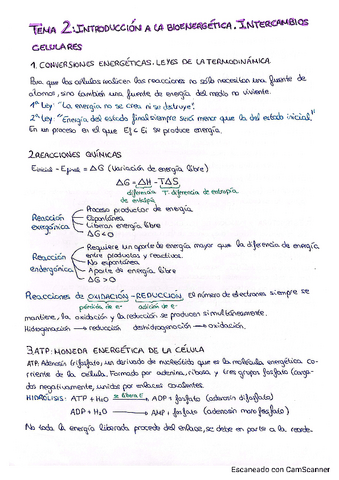 TEMA 2: INTRODUCCIÓN A LA BIOENERGÉTICA. INTERCAMBIOS
CELULARES
1. CONVERSIONES ENERGÉTICAS: LEYES DE LA TERMODINÁMICA.
Para que las células realicen las reacciones no sólo necesitan una fuente de
átomos, sino también una fuente de energía del medio no viviente.
1ª Ley: "La energía no se crea ni se destruye".
2ª Ley: "Energía del estado final siempre será menor que la del estado inicial"
En un proceso en el que Ef < Ei se produce energía.
2. REACCIONES QUÍMICAS
Einicial - Efinal = ΔG (Variación de energía libre)
ΔG = ΔH - TΔS
diferencia T. diferencia de entropía
de entalpía
Reacción exergónica
Proceso productor de energía
Espontánea
Liberan energía libre
ΔG < 0
Reacción endergónica
Requiere un aporte de energía mayor que la diferencia de energía
entre productos y reactivos.
No espontánea
Aporte de energía libre
ΔG > 0
Reacciones de OXIDACIÓN - REDUCCIÓN. El número de electrones siempre se
pérdida de e- adición de e-
mantiene, la oxidación y la reducción se producen simultáneamente.
Hidrogenación → reducción deshidrogenación → oxidación.
3. ATP: MONEDA ENERGÉTICA DE LA CÉLULA
ATP: Adenosín trifosfato, un derivado de nucleótido que es la molécula energética co-
rriente de la célula. Formado por adenina, ribosa y tres grupos fosfato (carga-
dos negativamente, unidos por enlaces covalentes.
HIDRÓLISIS: ATP + H2O se libera E → ADP + fosfato (adenosín difosfato)
ADP + H2O → AMP + fosfato (adenosín monofosfato)
No toda la energía liberada procede del enlace, se debe en parte a la reorde-
Escaneado con CamScanner